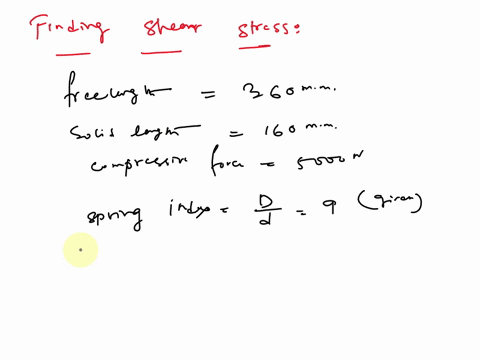 Finding Shear Stress:
free length = 360 m.m.
Solid length = 160 m.m.
compressive force = 5000 N
spring index = D/d = 9 (given)